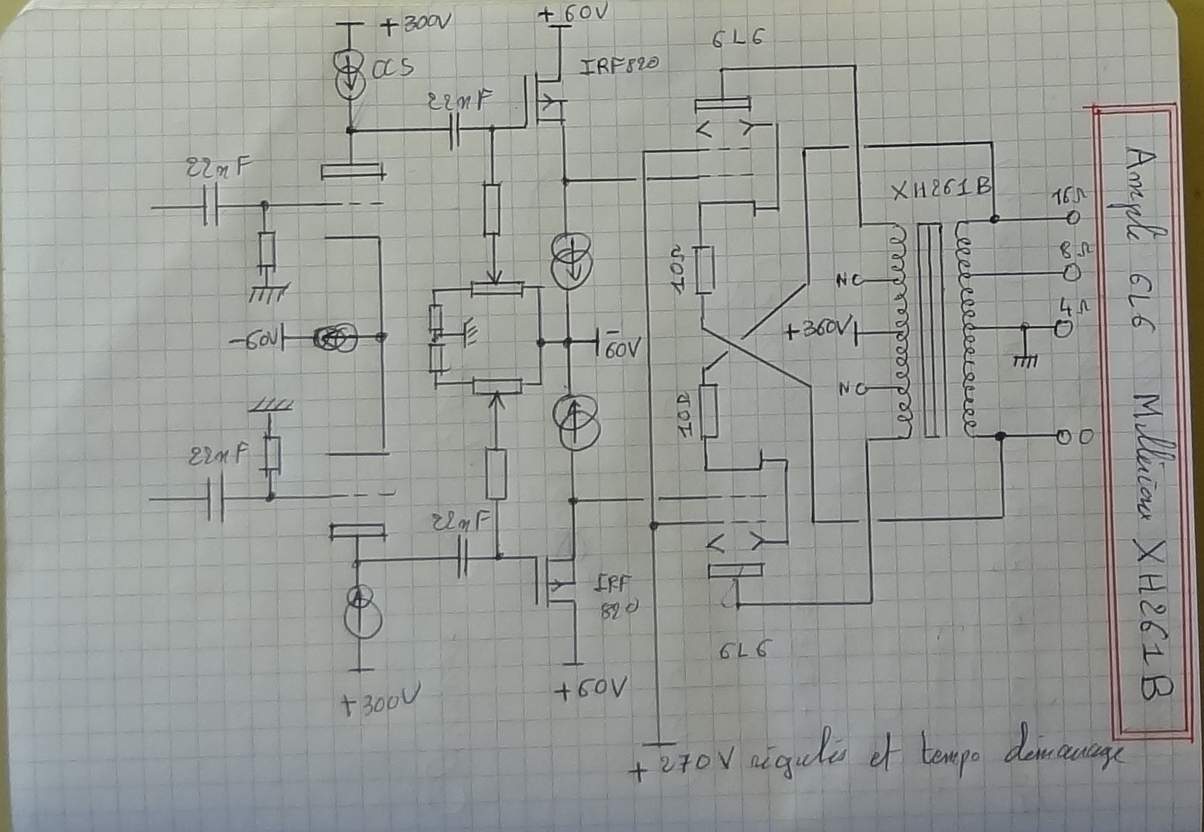 +300V
+60V
6L6
CCS
IRF820
22nF
22nF
XH261B
16Ω
8Ω
10Ω
NC
4Ω
-60V
-60V
+360V
NC
10Ω
22nF
0
22nF
IRF
820
6L6
+300V
+60V
+270V régulés et tempo démarrage
Ampli 6L6 Millérioux XH261B